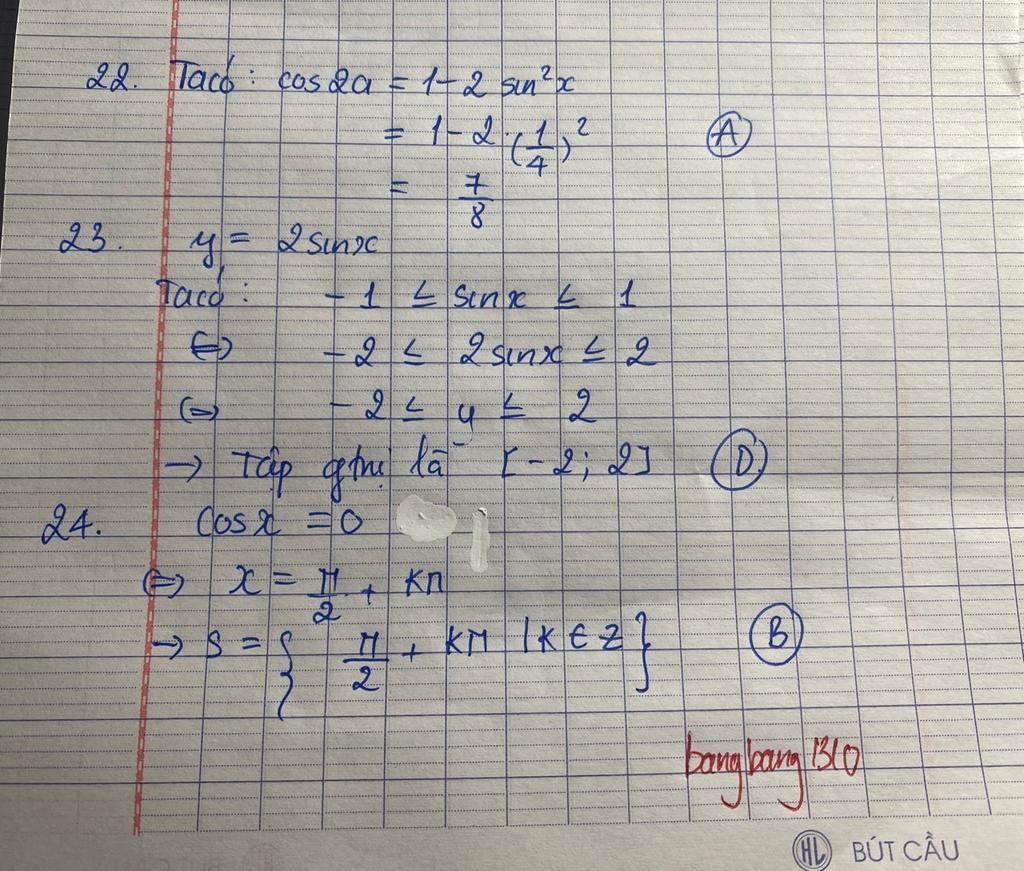 22. Ta có: cos2a = 1 - 2 sin²x
= 1 - 2.(1/4)² Ⓐ
= 7/8
23. y = 2sinx
Ta có: -1 ≤ sinx ≤ 1
⇔ -2 ≤ 2sinx ≤ 2
⇔ -2 ≤ y ≤ 2
→ Tập gtrị là [-2; 2] Ⓓ
24. cosx = 0
⇔ x = π/2 + kπ
→ S = { π/2 + kπ | k ∈ Z } Ⓑ
bangbang1310
HL BÚT CẦU